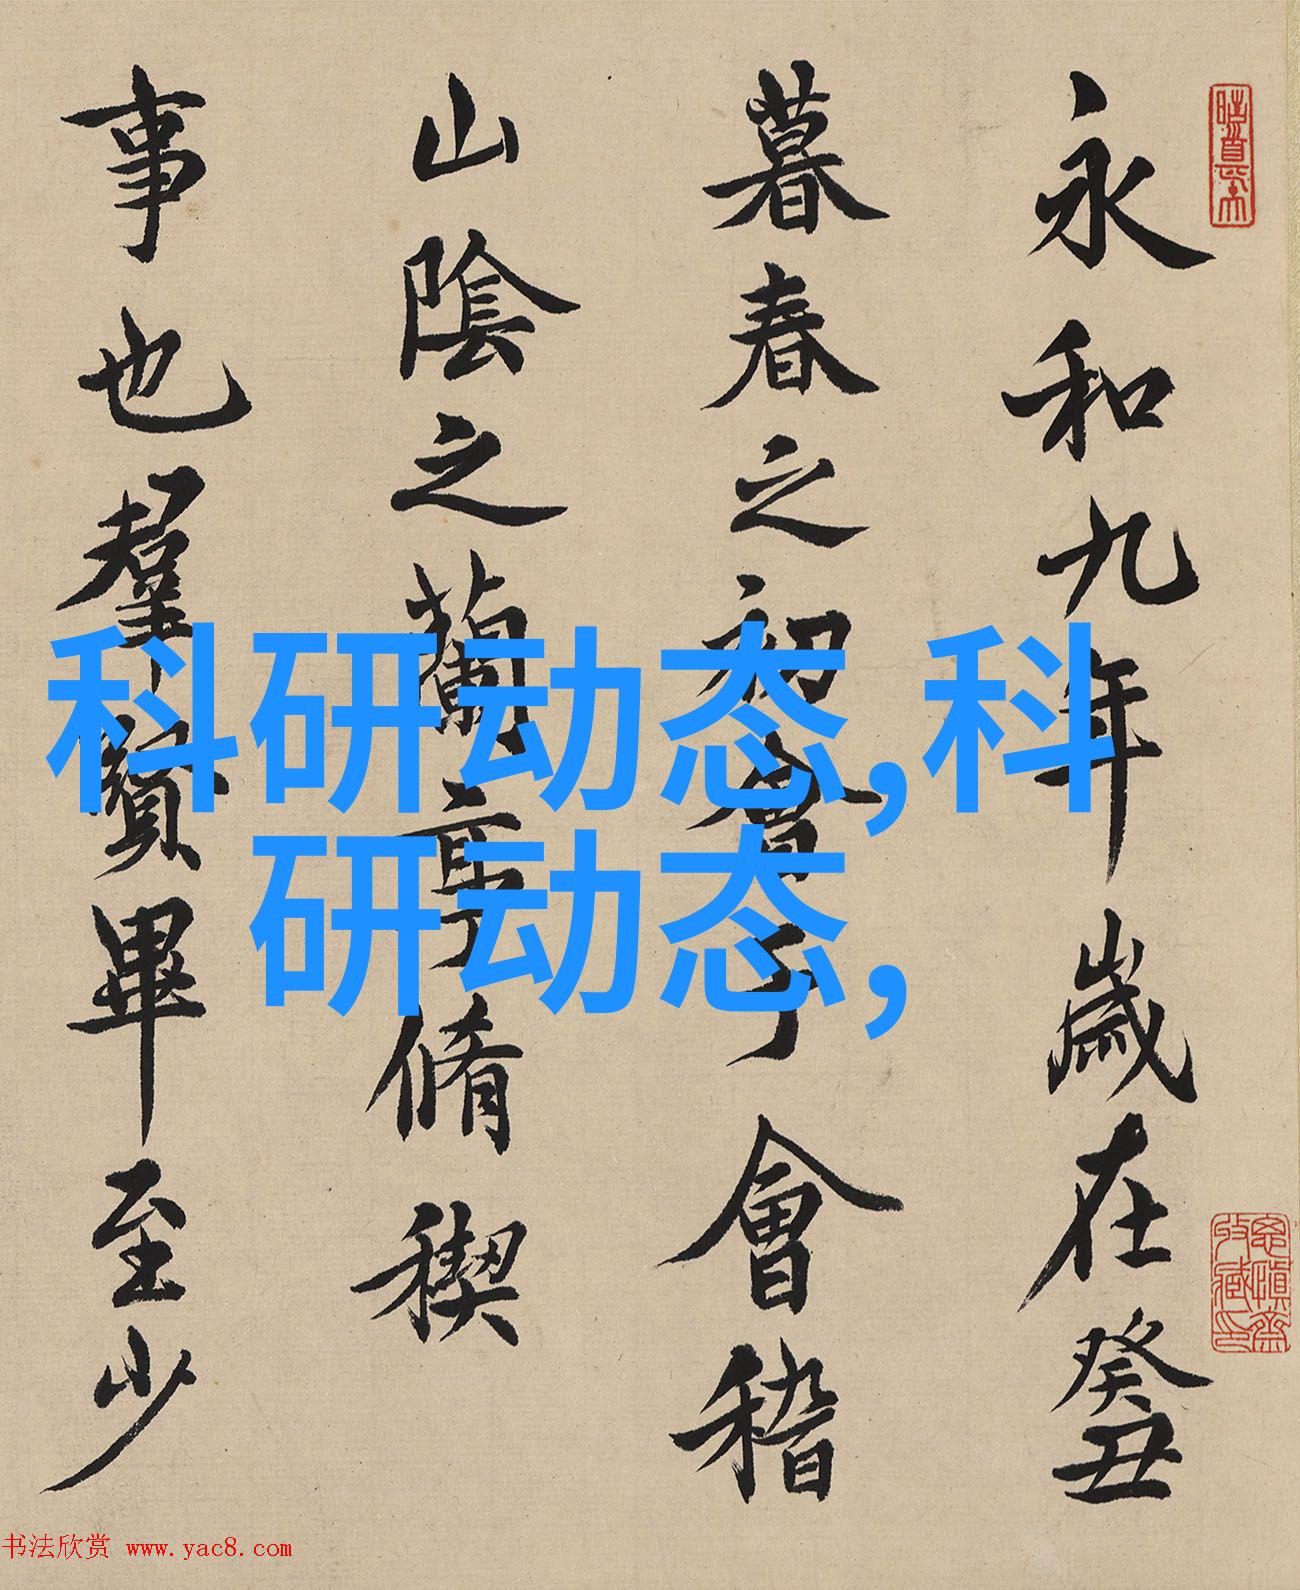 永和九年歲在癸丑
暮春之初會于會稽
山陰之蘭亭脩禊
事也羣賢畢至少
科研动态,科
研动态,
书法欣赏 www.yac8.com